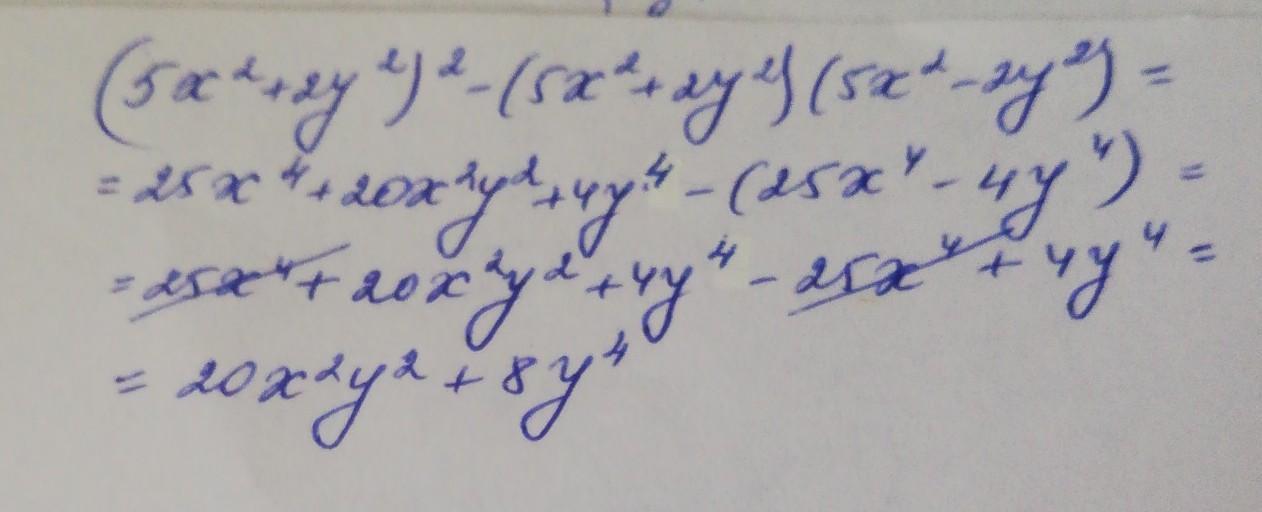 (5x²+2y²)²-(5x²+2y²)(5x²-2y²)=
=25x⁴+20x²y²+4y⁴-(25x⁴-4y⁴)=
=25x⁴+20x²y²+4y⁴-25x⁴+4y⁴=
=20x²y²+8y⁴